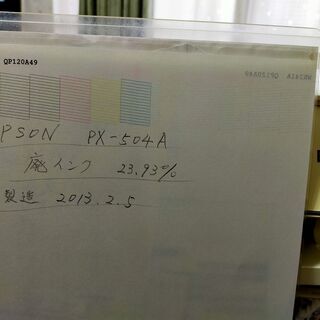 QP120A49
PSON PX-504A
廃インク 23.93%
製造 2013.2.5